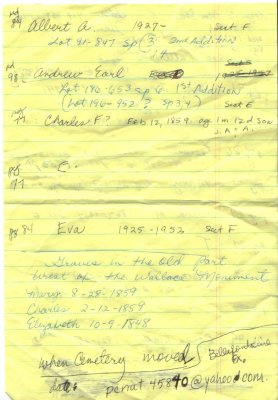 pg 84 Albert A. 1927- Sect F
Lot 91-847 Sp (3) 2nd Addition
pg 98 Andrew Earl
Lot 186-653 Sp 6 1st Addition
(Lot 196-952? Sp 3,4) Sect E
Charles F? Feb 12, 1859 age 1m 12d Son
J. A. A.
C.
pg 84 Eva 1925-1952 Sect F
Graves in the Old Part
West of the Wallace Monument
Mary 8-28-1859
Charles 2-12-1859
Elizabeth 10-9-1848
When Cemetery moved Bellefontaine
Oh.
perrat45840@yahoo.com